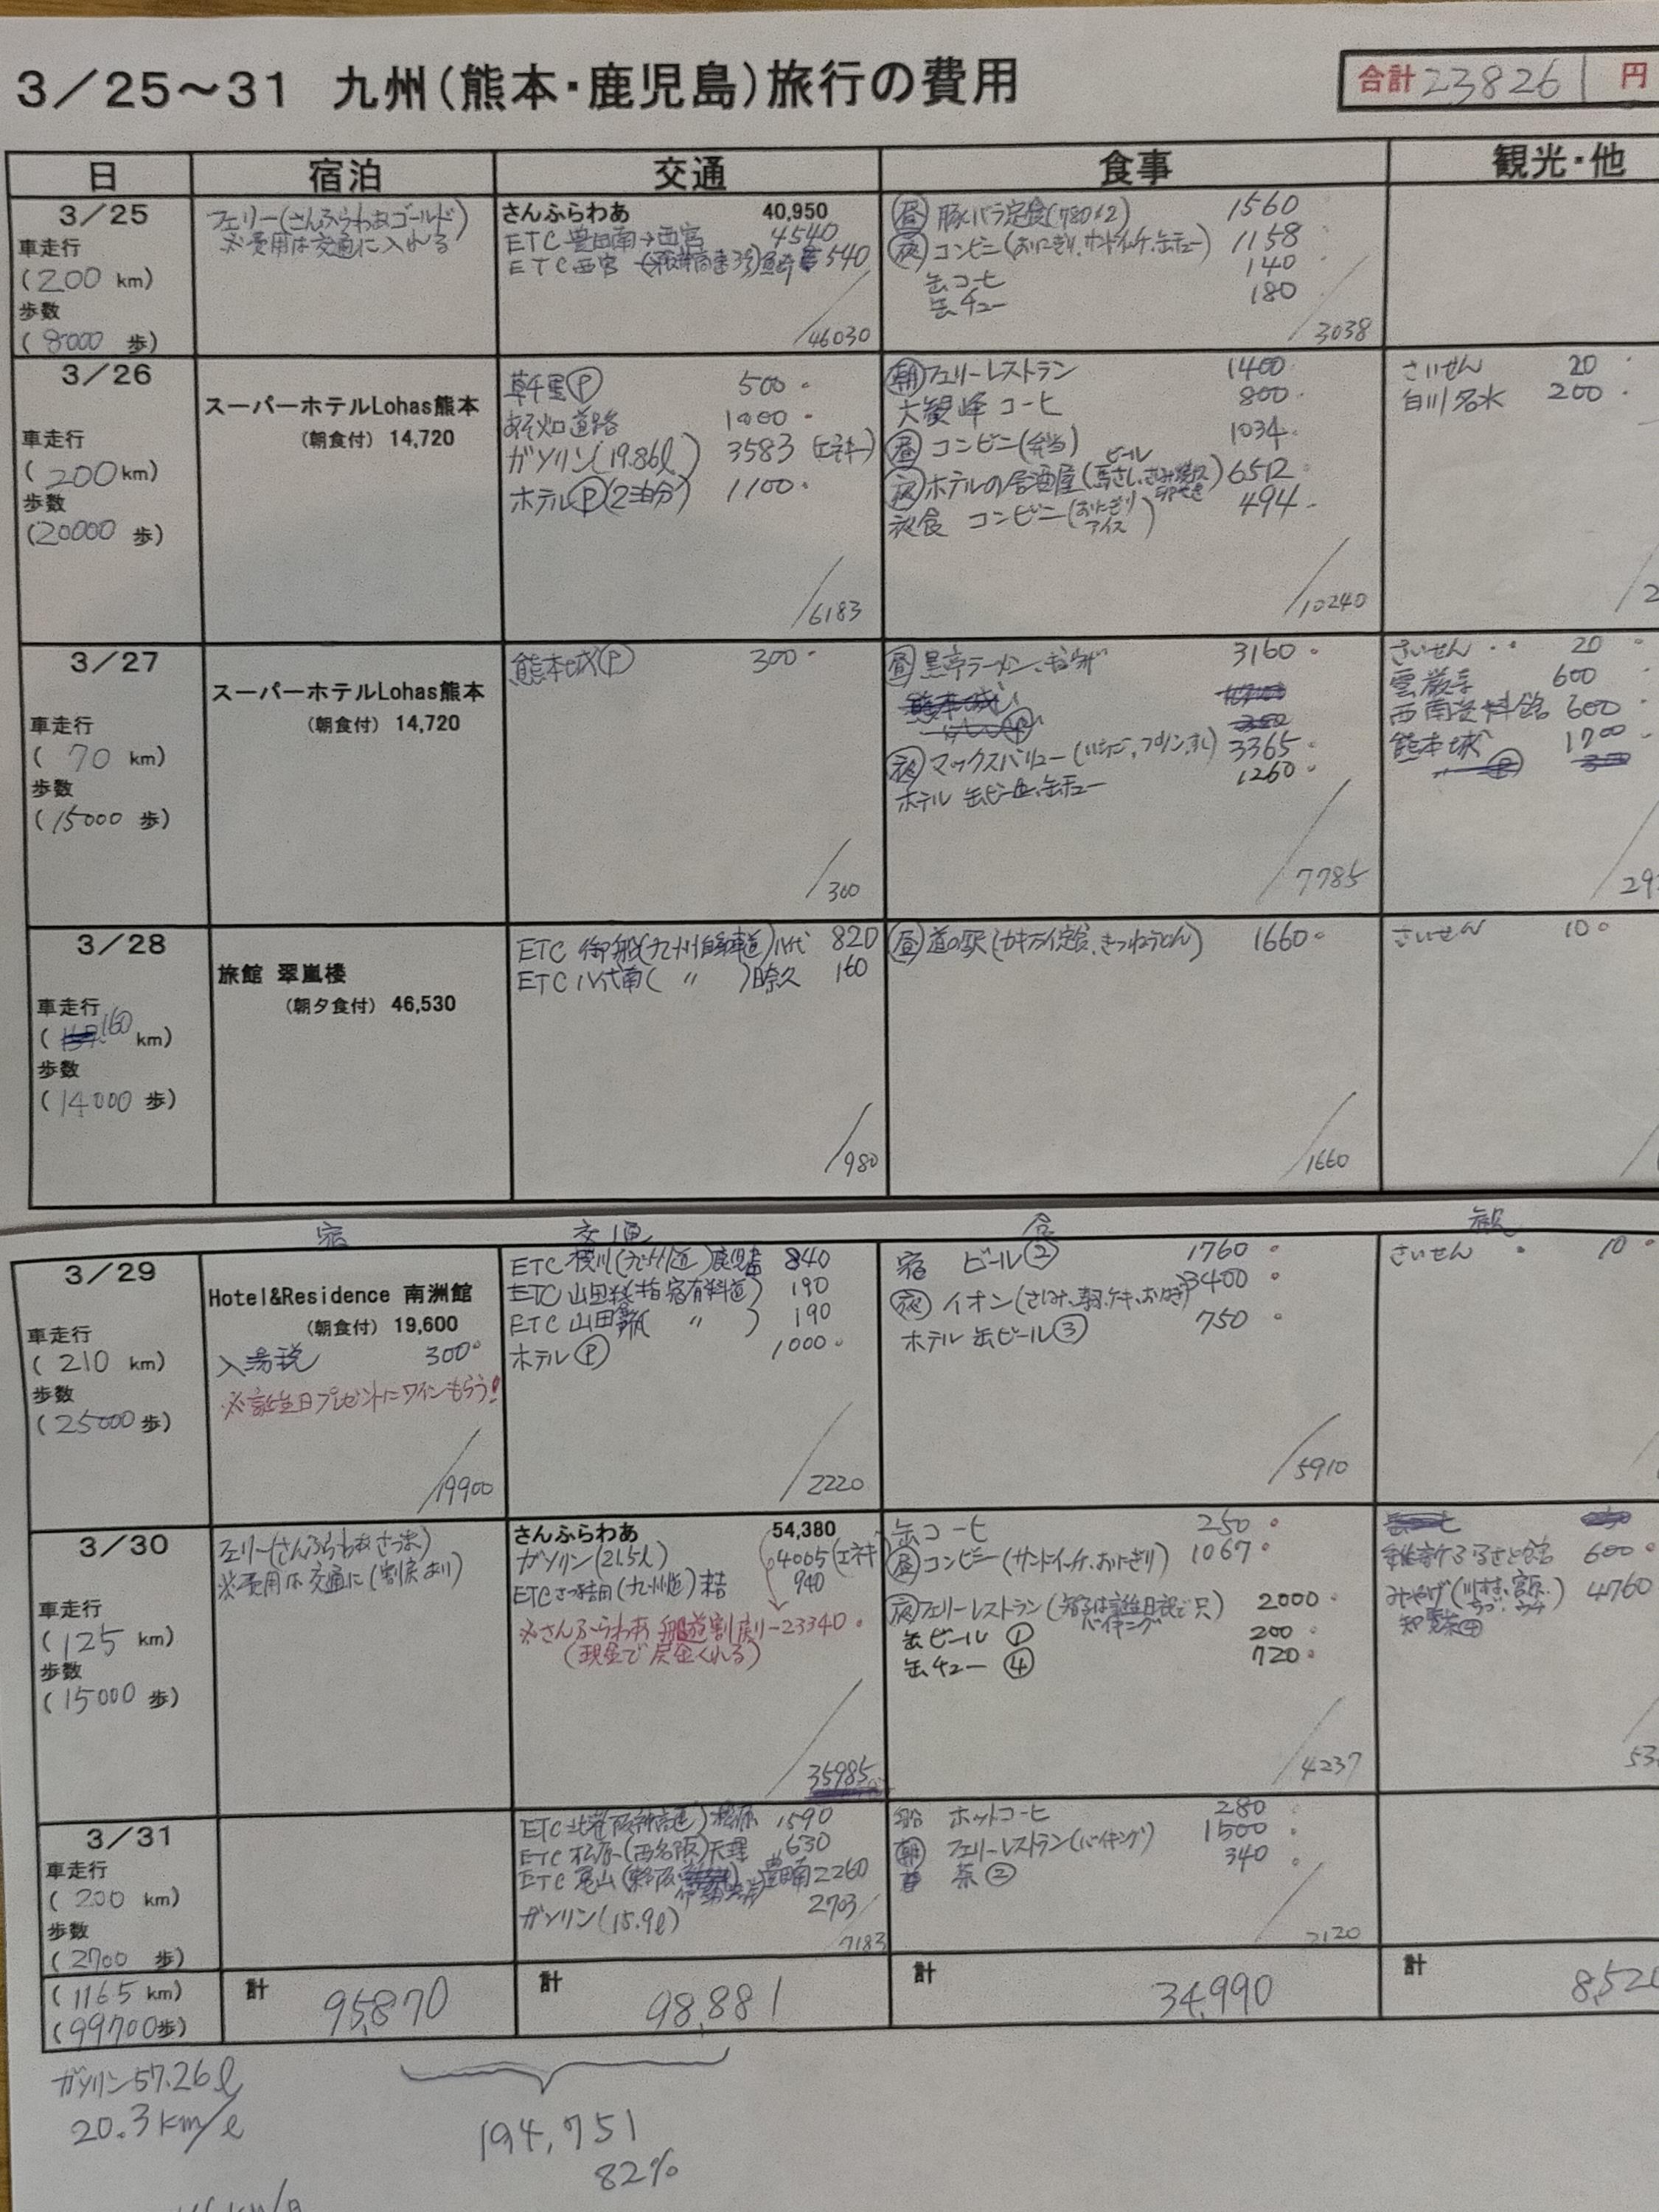 3/25～31 九州(熊本・鹿児島)旅行の費用
合計 238261 円
日 宿泊 交通 食事 観光・他
3/25
車走行
(200 km)
歩数
(8000 歩)
フェリー(さんふらわあゴールド)
※費用は交通に入れる
さんふらわあ 40,950
ETC 豊田南→西宮 4540
ETC 西宮 540
/46030
昼 豚バラ定食(780×2) 1560
夜 コンビニ(おにぎり、サンドイッチ、缶チュー) 1158
缶コーヒ 140
缶チュー 180
/3038
3/26
車走行
(200 km)
歩数
(20000 歩)
スーパーホテルLohas熊本
(朝食付) 14,720
草千里Ⓟ 500
あそ火口道路 1000
ガソリン(19.86ℓ) 3583 (エネキー)
ホテルⓅ(2泊分) 1100
/6183
朝 フェリーレストラン 1400
大観峰 コーヒ 800
昼 コンビニ(弁当) 1034
夜 ホテルの居酒屋(馬さし、ビール 6512
夜食 コンビニ(おにぎり アイス) 494
/10240
さいせん 20
白川名水 200
3/27
車走行
(70 km)
歩数
(15000 歩)
スーパーホテルLohas熊本
(朝食付) 14,720
熊本城Ⓟ 300
/300
昼 黒亭ラーメン、ギョウザ 3160
夜 マックスバリュー(いちご、プリン、すし) 3365
ホテル 缶ビール、缶チュー 1260
/7785
さいせん 20
雲厳寺 600
西南資料館 600
熊本城 1700
3/28
車走行
(160 km)
歩数
(14000 歩)
旅館 翠嵐楼
(朝夕食付) 46,530
ETC 御船(九州自動車道)八代 820
ETC 八代南( 〃 )日奈久 160
/980
昼 道の駅(カキフライ定食、きつねうどん) 1660
/1660
さいせん 10
宿 交通 食 観
3/29
車走行
(210 km)
歩数
(25000 歩)
Hotel&Residence 南洲館
(朝食付) 19,600
入湯税 300
※誕生日プレゼントにワインもらう!
/19900
ETC 横川(九州道)鹿児島 840
ETC 山田(指宿有料道) 190
ETC 山田( 〃 ) 190
ホテルⓅ 1000
/2220
宿 ビール② 1760
夜 イオン(さしみ、ケーキ、おにぎり) 3400
ホテル 缶ビール③ 750
/5910
さいせん 10
3/30
車走行
(125 km)
歩数
(15000 歩)
フェリー(さんふらわあさつま)
※費用は交通に(割戻あり)
さんふらわあ 54,380
ガソリン(21.5ℓ) 4065(エネキー
ETC さつま吉田(九州道) 940
※さんふらわあ 船遊割戻り -23340
(現金で戻金くれる)
/35985
缶コーヒ 250
昼 コンビニ(サンドイッチ、おにぎり) 1067
夜 フェリーレストラン(誕生日祝で バイキング 2000
缶ビール① 200
缶チュー④ 720
/4237
ふるさと館 600
みやげ 4760
知覧茶④
3/31
車走行
(200 km)
歩数
(2700 歩)
ETC 北港(阪神高速)松原 1590
ETC 松原(西名阪)天理 630
ETC 亀山 豊田南 2260
ガソリン(15.9ℓ) 2703
/7183
船 ホットコーヒ 280
朝 フェリーレストラン(バイキング) 1500
昼 茶② 340
/2120
(1165 km)
(99700歩)
計 95,870
計 98,881
計 34,990
計
ガソリン57.26ℓ
20.3km/ℓ
194,751
82%